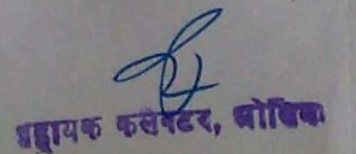 सहायक कलेक्टर, ओसियां